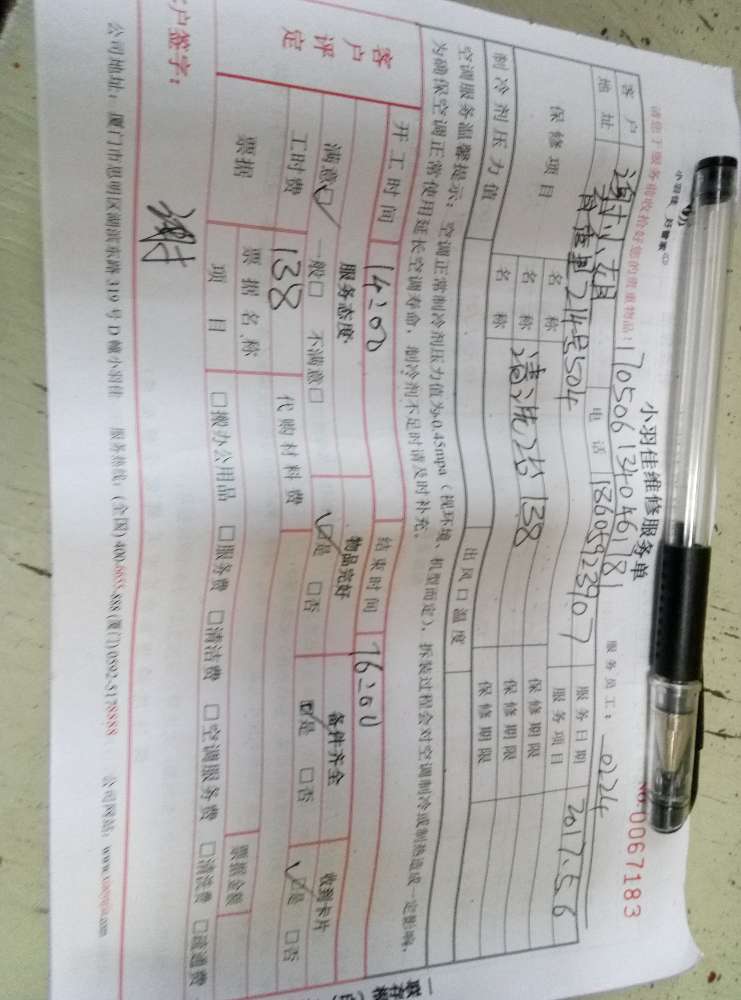 小羽佳维修服务单
小羽佳 好管家
No 0067183
请您于服务前收拾好您的贵重物品! 170506134046181 服务员工: 0224
客户 谢小姐 电话 18605923907 服务日期 2017.5.6
地址 214号504 服务项目
保修项目 名称 清洗 138 保修期限
名称 保修期限
名称 保修期限
制冷剂压力值 出风口温度
空调服务温馨提示: 空调正常制冷剂压力值为0.45mpa (视环境、机型而定), 拆装过程会对空调制冷或制热造成一定影响,
为确保空调正常使用延长空调寿命, 制冷剂不足时请及时补充。
开工时间 14:00 结束时间 16:00
客户评定 服务态度 物品完好 备件齐全 收到卡片
满意☑ 一般□ 不满意□ ☑是 □否 ☑是 □否 ☑是 □否
工时费 138 代购材料费
票据 票据名称 票据金额
项目 □搬办公用品 □服务费 □清洁费 □空调服务费 □清洗费 □疏通费
户签字: 谢
公司地址: 厦门市思明区湖滨东路319号D幢小羽佳 服务热线: (全国) 400-6655-888 (厦门) 0592-5178888 公司网站: